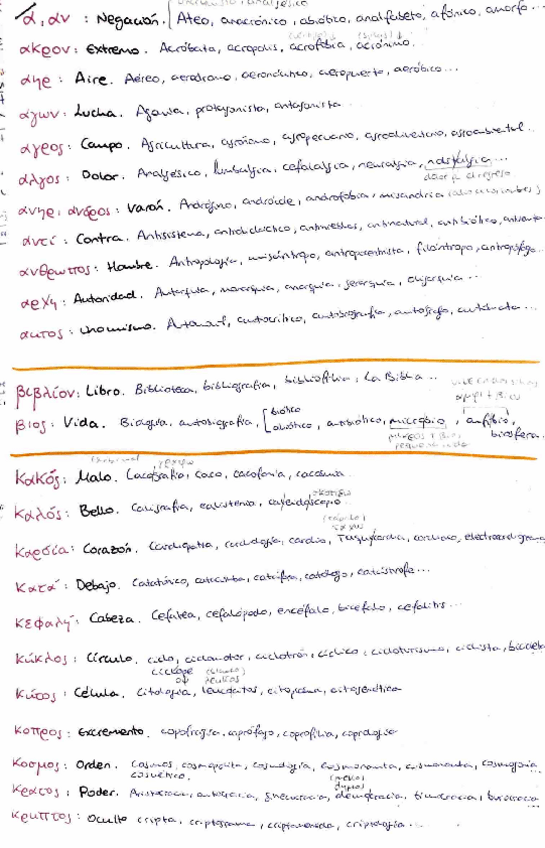 α, αν : Negación. Ateo, anacrónico, abiótico, analfabeto, afónico, amorfo...
ακρον: Extremo. Acróbata, acrópolis, acrofobia, acrónimo...
αηρ: Aire. Aéreo, aerodromo, aeronáutico, aeropuerto, aeróbico...
αγων: Lucha. Agonía, protagonista, antagonista...
αγρος: Campo. Agricultura, agrónomo, agropecuario, agroalimentario, agroambiental...
αλγος: Dolor. Analgésico, lumbalgia, cefalalgia, neuralgia, nostalgia...
dolor al regreso
ανηρ, ανδρος: Varón. Andrógino, androide, androfobia, misandria
αντί: Contra. Antisistema, antinatural, antibiótico,
ανθρωπος: Hombre. Antropología, misántropo, antropocentrista, filántropo, antropófago...
αρχη: Autoridad. Autarquía, monarquía, anarquía, jerarquía, oligarquía...
αυτος: uno mismo. autocrítico, autobiografía, autógrafo, autómata...
βιβλίον: Libro. Biblioteca, bibliografía, bibliofilia, La Biblia...
βιος: Vida. Biología, autobiografía, abiótico, antibiótico, microbio, anfibio, biosfera.
biótico
κακός: Malo. Cacografía, caco, cacofonía,
καλός: Bello. Caligrafía, calistenia, caleidoscopio
καρδία: Corazón. Cardiopatía, cardiología, cardio, Taquicardia, cardíaco, electrocardiograma
κατά: Debajo. Catatónico, catacumba, catálogo, catástrofe...
κεφαλή: Cabeza. Cefalea, cefalópodo, encéfalo, bicéfalo, cefalitis...
κύκλος: Círculo. ciclo, ciclomotor, ciclotrón, cíclico, cicloturismo, ciclista, bicicleta
cíclope
κύτος: Célula. Citología, leucocitos, citoplasma, citogenética
κοπρος: Excremento. coprofagia, coprófago, coprofilia, coprología
κοσμος: Orden. Cosmos, cosmopolita, cosmología, cosmonauta, cosmogonía
cosmético.
κρατος: Poder. Aristocracia, autocracia, ginecocracia, democracia, timocracia, burocracia
κρυπτος: Oculto cripta, criptograma, criptomoneda, criptología...